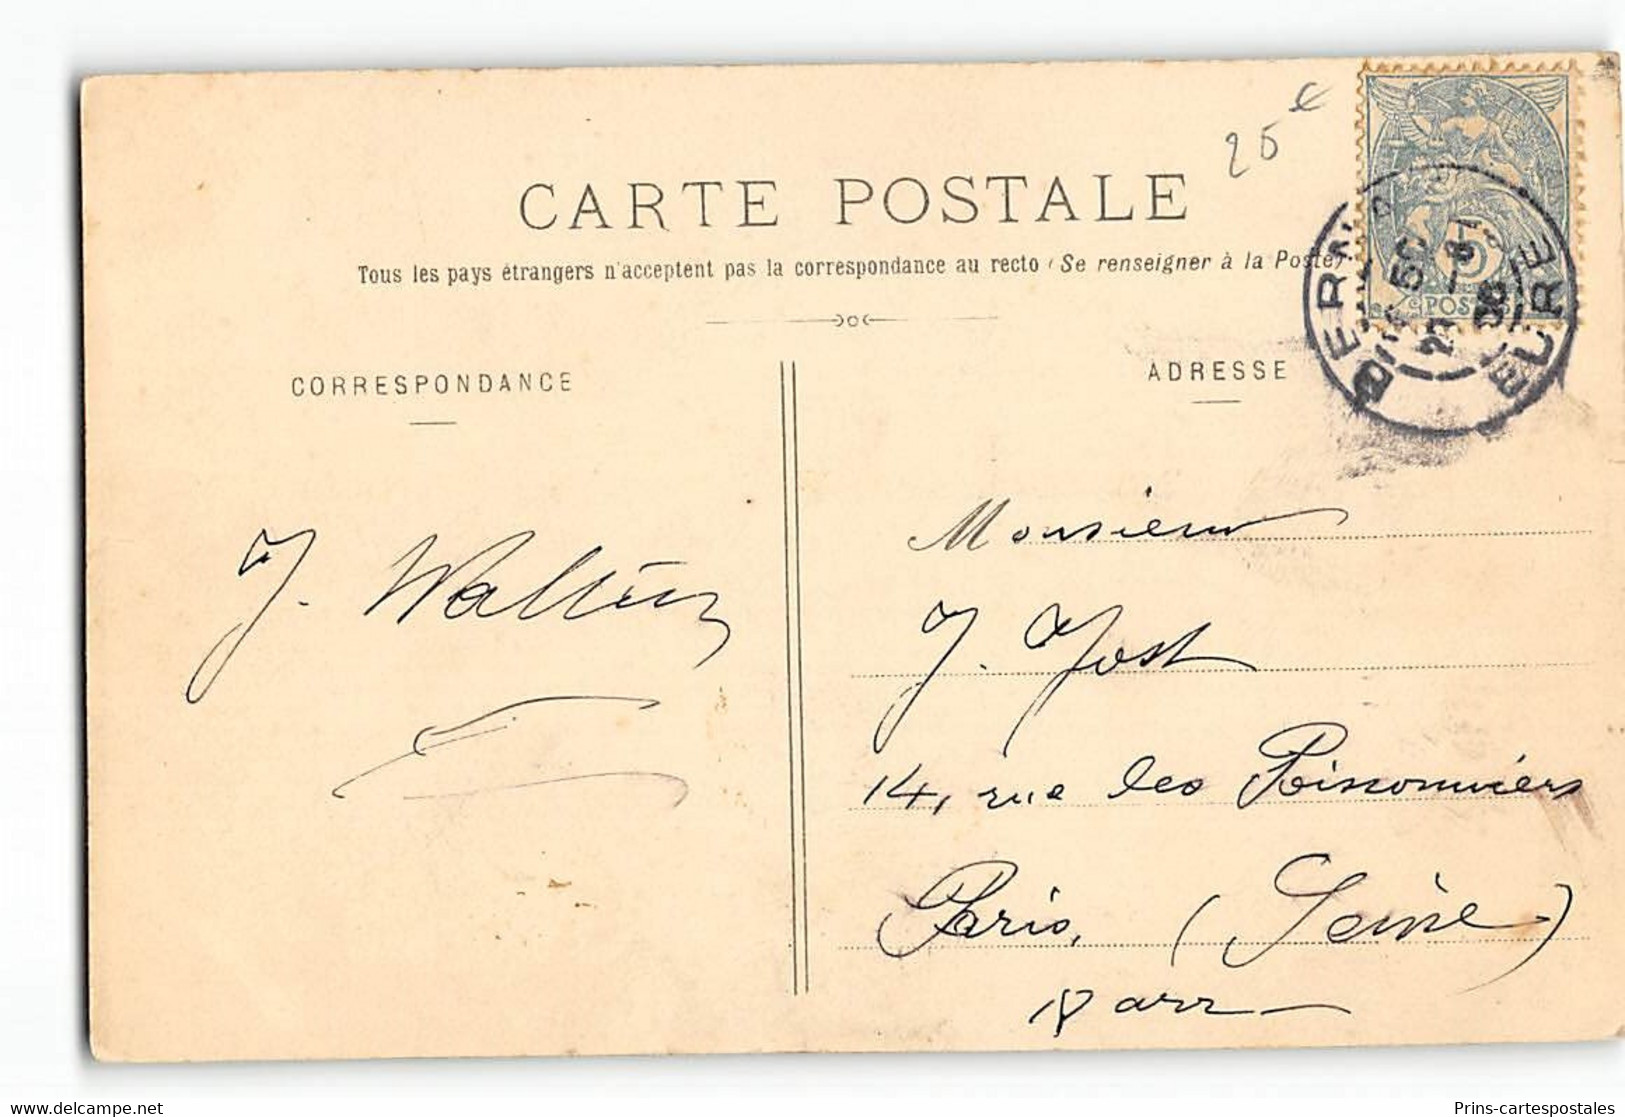 25 €
CARTE POSTALE
Tous les pays étrangers n'acceptent pas la correspondance au recto (Se renseigner à la Poste)
CORRESPONDANCE
ADRESSE
5
POSTES
EURE
J. Walter
Monsieur
J. Jost
14, rue des Poissonniers
Paris, (Seine)
arr
delcampe.net
Prins-cartespostales